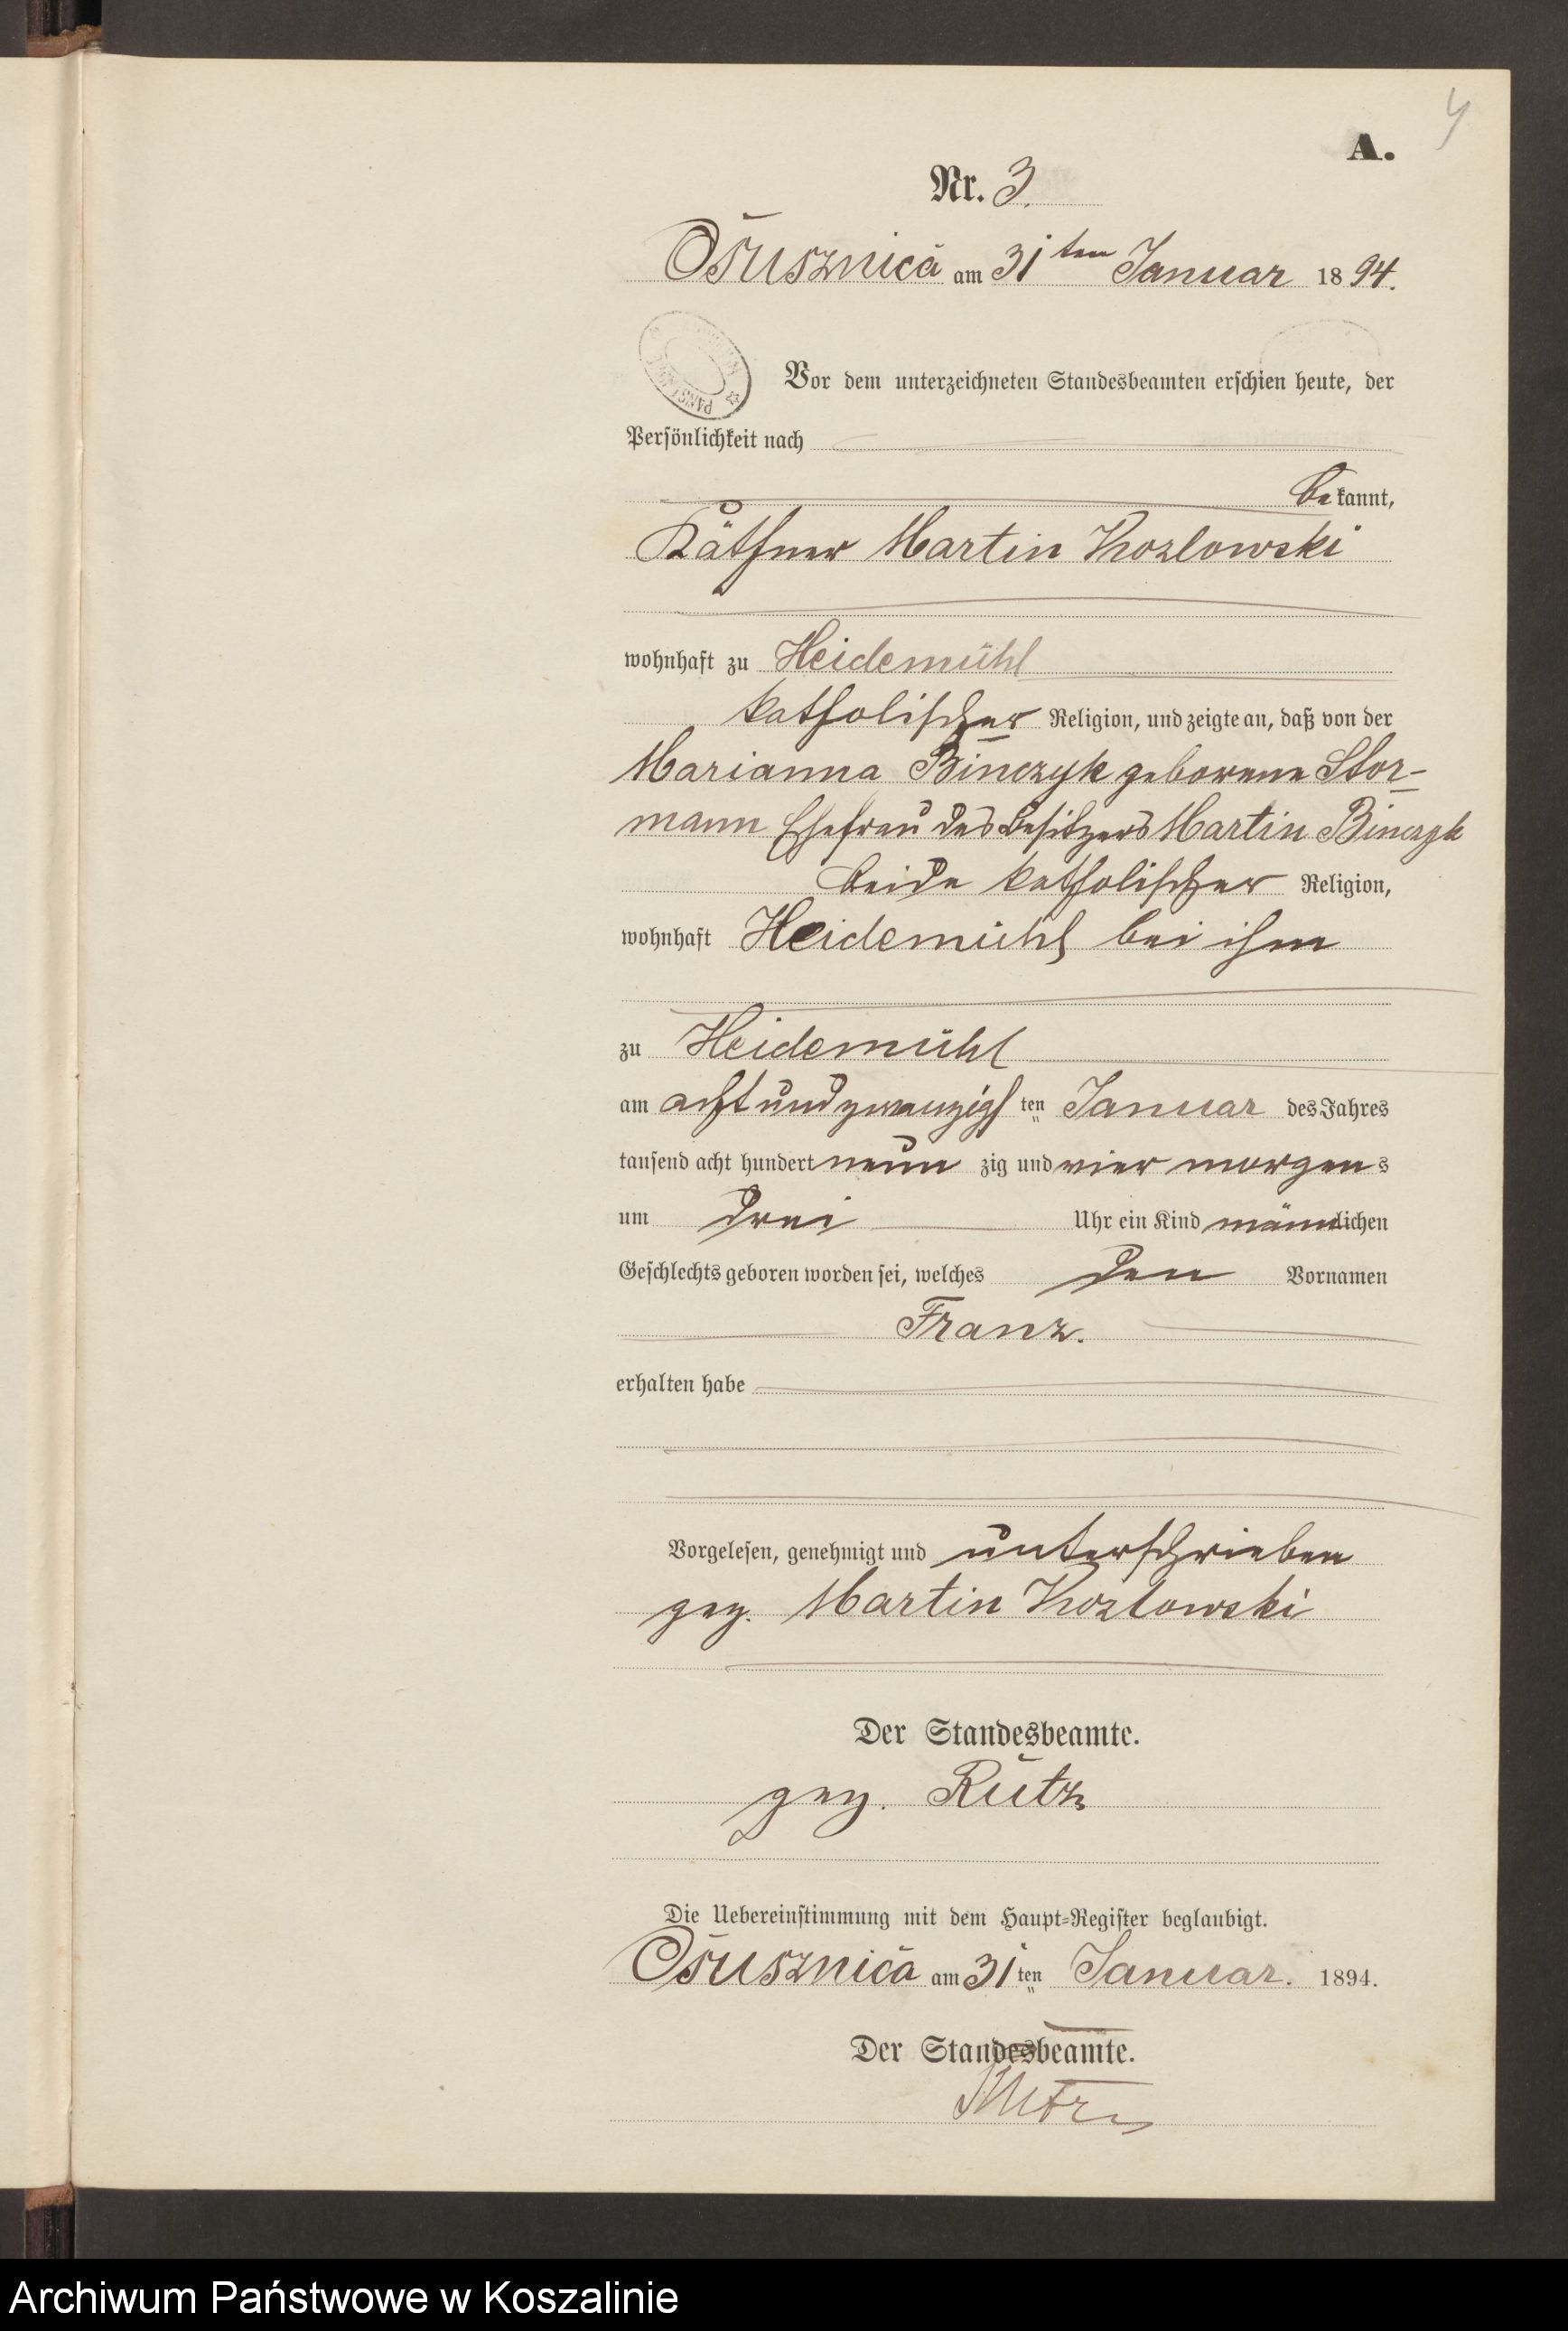 4
A.
Nr. 3.
Osusznica am 31ten Januar 1894.
Vor dem unterzeichneten Standesbeamten erschien heute, der
Persönlichkeit nach
bekannt,
Käthner Martin Kozlowski
wohnhaft zu Heidemühl
katholischer Religion, und zeigte an, daß von der
Marianna Binczyk geborene Stor-
mann Ehefrau des Besitzers Martin Binczyk
beide katholischer Religion,
wohnhaft Heidemühl bei ihm
zu Heidemühl
am achtundzwanzigsten Januar des Jahres
tausend acht hundert neun zig und vier morgens
um drei Uhr ein Kind männlichen
Geschlechts geboren worden sei, welches den Vornamen
Franz.
erhalten habe
Vorgelesen, genehmigt und unterschrieben
gez. Martin Kozlowski
Der Standesbeamte.
gez. Rutz
Die Uebereinstimmung mit dem Haupt-Register beglaubigt.
Osusznica am 31ten Januar. 1894.
Der Standesbeamte.
Rutz
Archiwum Państwowe w Koszalinie